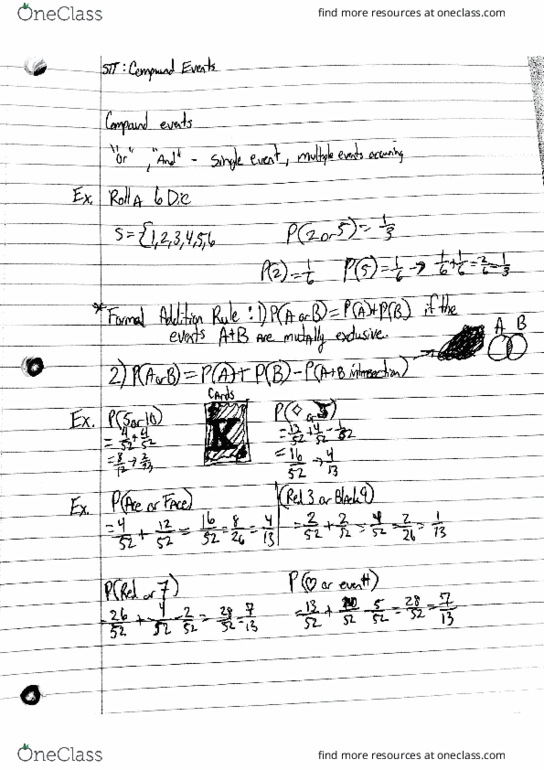 OneClass
find more resources at oneclass.com
Compound Events
Compound events
"Or", "And" - Single event, multiple events occuring
Ex. Roll A 6 Die
S = {1,2,3,4,5,6
P(2 or 5) = 1/3
P(2) = 1/6 P(5) = 1/6 → 1/6 + 1/6 = 2/6 = 1/3
* Formal Addition Rule: 1) P(A or B) = P(A) + P(B) if the
events A+B are mutally exclusive.
A B
2) P(A or B) = P(A) + P(B) - P(A+B intersection)
Cards
K
Ex. P(5 or 10)
= 4/52 + 4/52
P(◇ or
= 13/52 + 4/52 - 1/52
= 16/52 → 4/13
Ex. P(Ace or Face)
= 4/52 + 12/52 = 16/52 = 8/26 = 4/13
(Red 3 or Black 9)
= 2/52 + 2/52 = 4/52 = 2/26 = 1/13
P(Red or 7)
26/52 + 4/52 - 2/52 = 28/52 = 7/13
P(♡ or even#)
= 13/52 + 20/52 - 5/52 = 28/52 = 7/13
OneClass
find more resources at oneclass.com